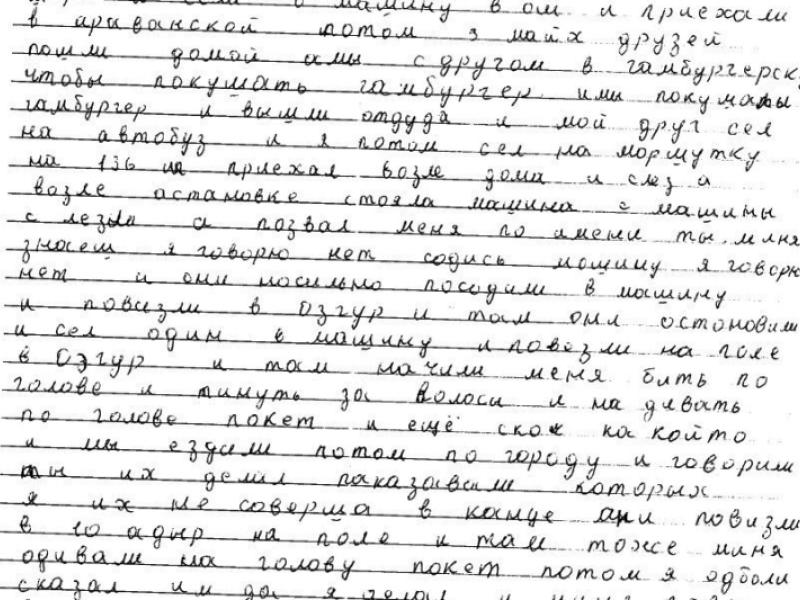 в машину в ом и приехали
в араванской потом з майх друзей
пошли домой амы с другом в гамбургерск
чтобы покушать гамбургер ими покушалы
гамбургер и вышли отдуда и мой друг сел
на автобуз и я потом сел на моршутку
на 136 и приехал возле дома и слез а
возле астановке стояла машина с машины
слезли а позвал меня по имени ты миня
знаеш я говорю нет содись мошину я говорю
нет и они носильно посодили в машину
и повизли в Озгур и там они остоновили
и сел один в машину и повезли на поле
в Озгур и там начили меня бить по
голове и тинуть за волосы и на девать
по голове покет и ещё скоч какойто
и мы ездили потом по городу и говорили
ты их делил паказавали которых
я их не соверша в канце они повизли
в 10 адыр на поле и там тоже миня
одивали на голову покет потом я
сказал им да я делал и